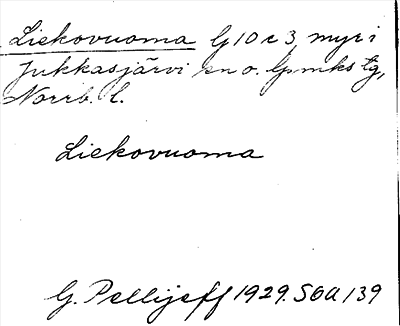 Liekovuoma G 10 c 3, myr i
Jukkasjärvi sn o. lpmks tg,
Norrb. l.
Liekovuoma
G. Pellijeff 1929. SOU 139